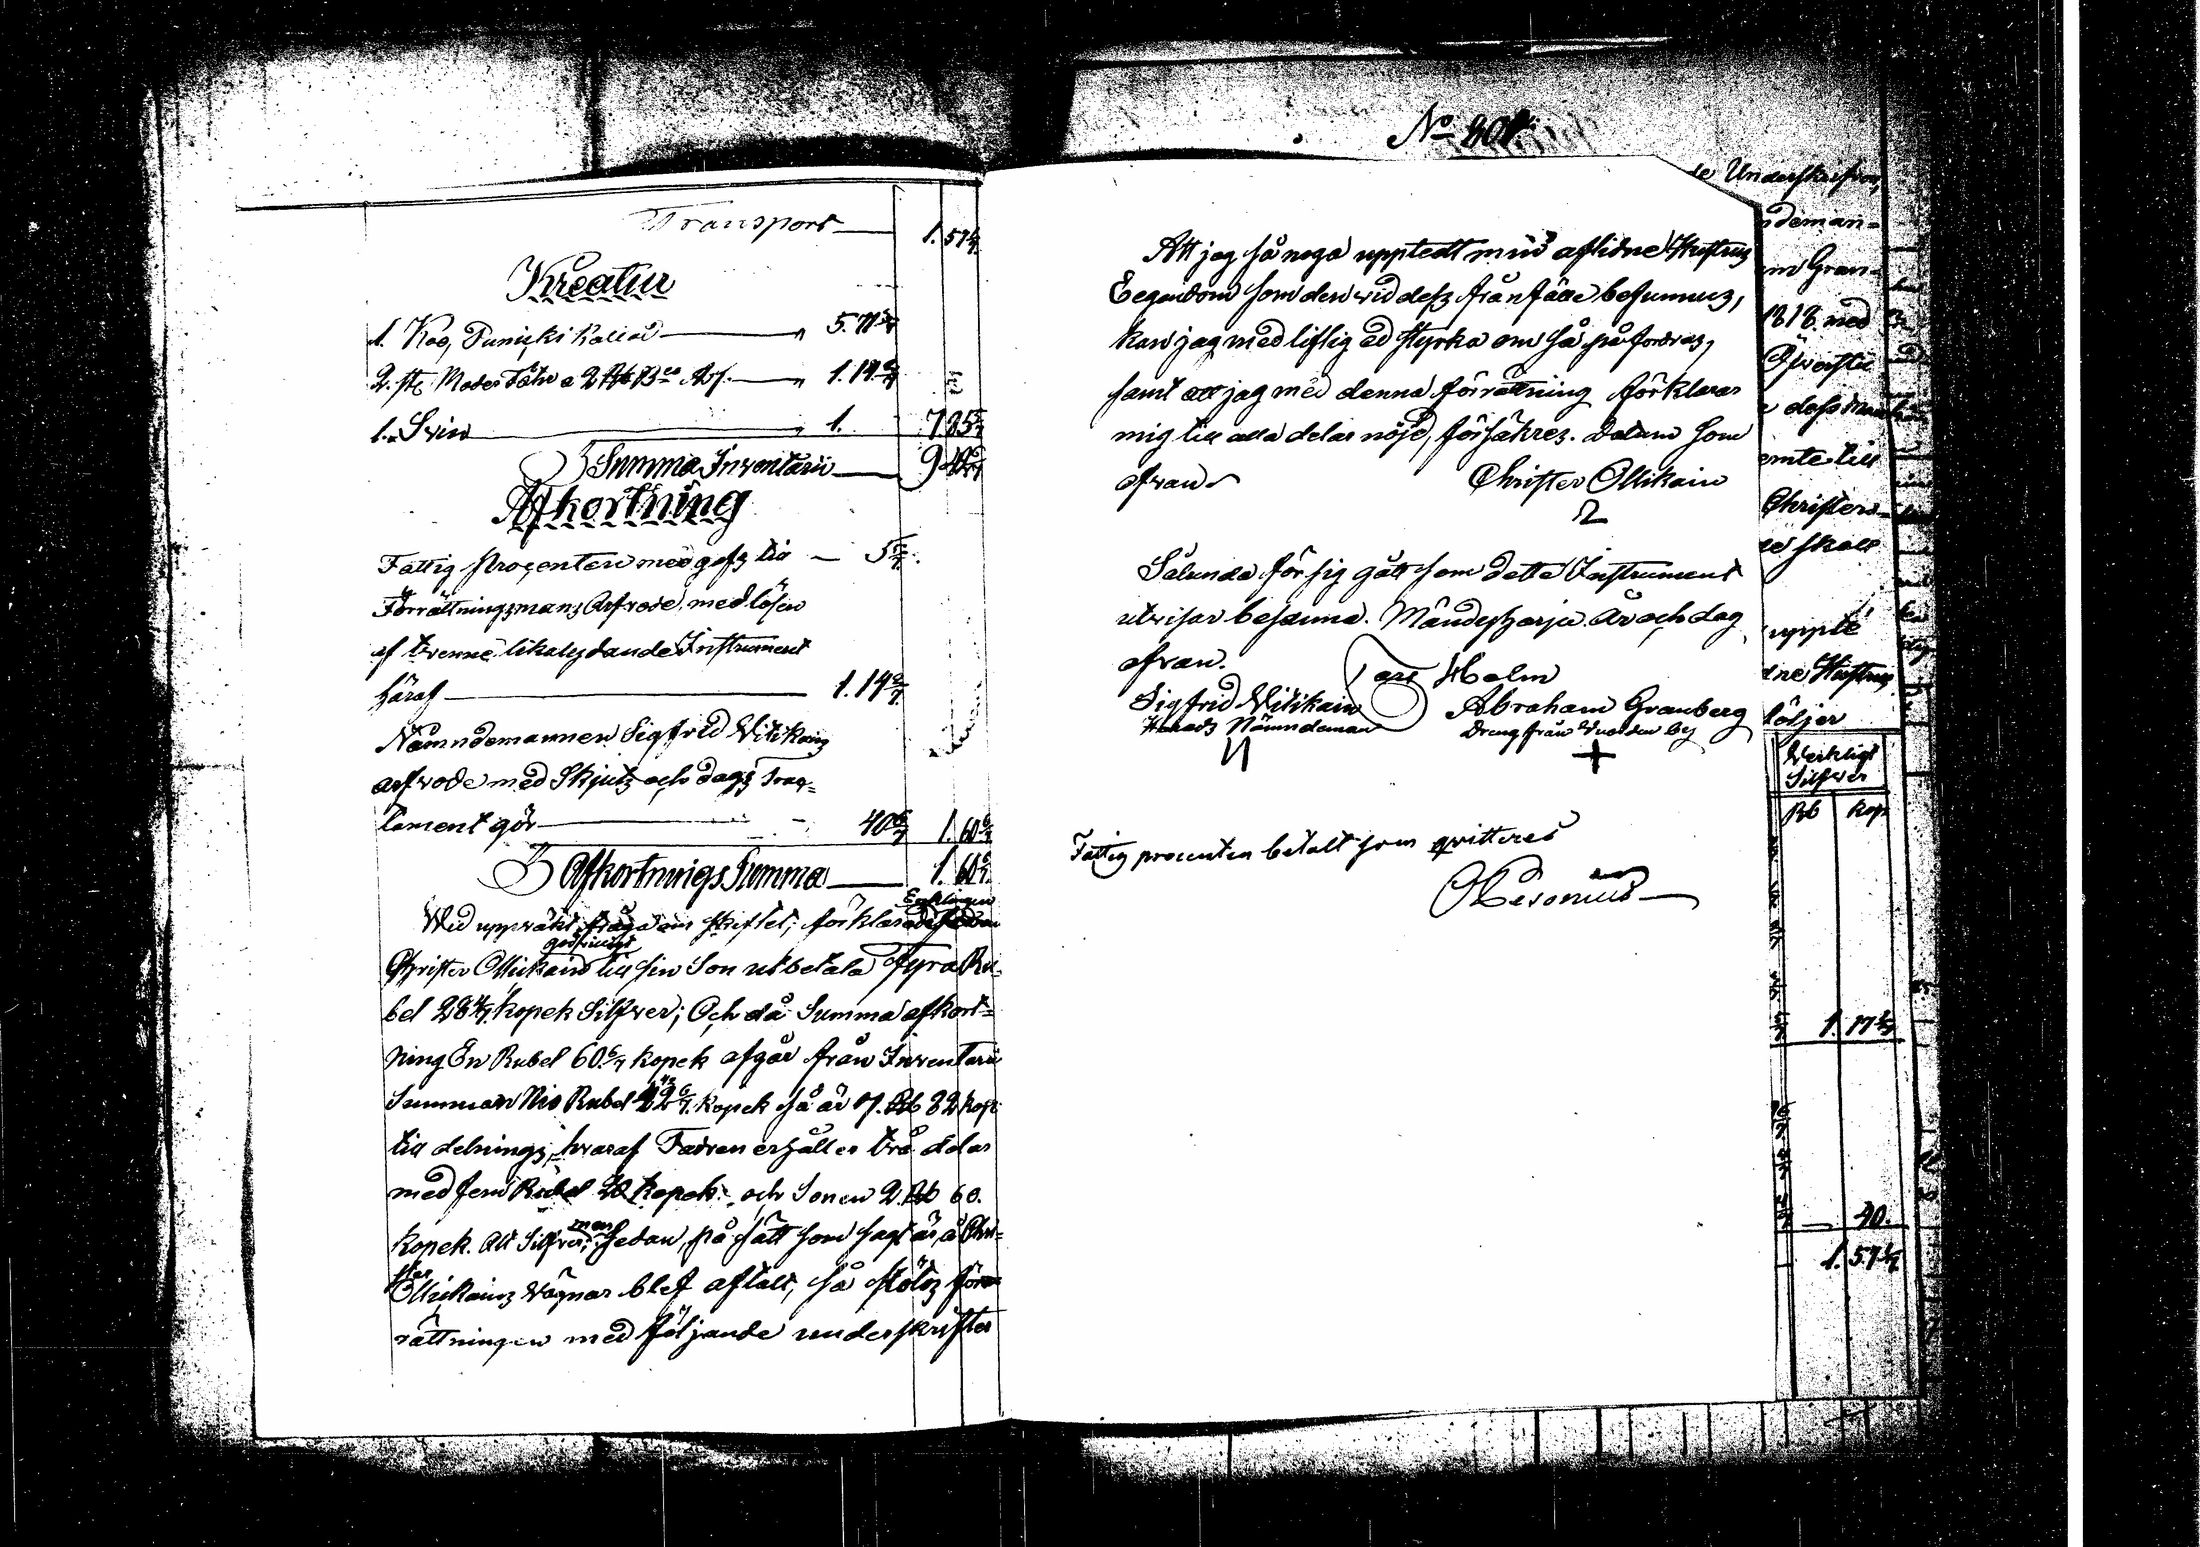 Transport 1. 57 1/7.
Kreatur
1. Koo, Punicki kallad 5. 71 3/7
2. st: Moder Får a 2 Rb Bco Ass. 1. 14 2/7
1. Svin 1. 7. 85 5/7
Summa Inventarii 9. 42 6/7
Afkortning
Fattig procenten med gofz till 5 5/7.
Förrättningzmanz Arfvode, med lösen
af tvenne likalydande Instrument
häraf 1. 14 2/7.
Nämndemannen Sigfrid Vitikainz
arfvode med Skjutz och dagz Trac=
tament gör 40 6/7 1. 60 6/7
Afkortnings Summa 1. 60 6/7.
Enklingen
Wid uppväkt fråga om skiftet, förklarade
godwilligt
Christer Ollikain till sin Son utbetala Fyra Ru=
bel 28 4/7. kopek Silfver; Och då Summa afkort=
ning En Rubel 60 6/7 kopek afgår från Inventarii
Summan Nio Rubel 42 6/7. kopek så är 7. Rb 82 kop:
till delnings, hvaraf Fadren erhåller två delar
med fem Rubel 22 kopek: och Sonen 2. Rb 60.
kopek. Allt Silfver; men Sedan, på sätt som sagt är, å Chri=
ster
Ollikainz vägnar blef aftalt, så slötz för=
rättningen med följande underskrifter
No 201.
Att jag så noga upptedt min aflidne Hustruz
Eegendom som den vid desz frånfälle befunnuz,
kan jag med liflig ed styrka om så påfordraz,
samt att jag med denna förrättning förklarar
mig till alla delar nöjd, försäkrez. Datum som
ofvan.
Christer Ollikain
Sålunda för sig gått som detta Instrument
utvisar besanna. Mändyharju. År och dag
ofvan.
Lars Holm
Sigfrid Vitikain
Härads Nämndeman
Abraham Granberg
Dreng från by
Fattig procenten betalt som qvitteres
OLesonius
de Underskrifven,
ndeman=
m Gran=
1818. med
emte till
Christers
de skall
uppté
dne Hustruz
följer
Werkligt
Silfver
Rb kop.
1. 17 1/7
40.
1. 57 1/7